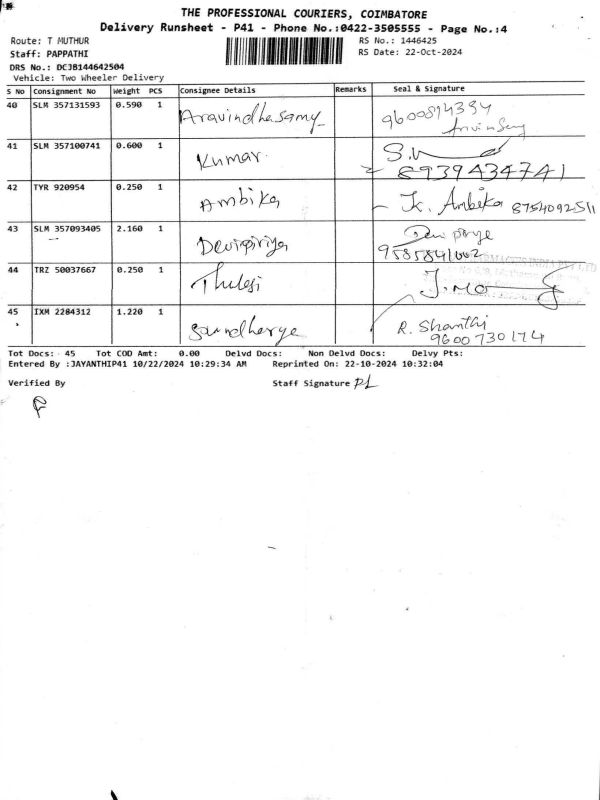 THE PROFESSIONAL COURIERS, COIMBATORE
Delivery Runsheet - P41 - Phone No.:0422-3505555 - Page No.:4
Route: T MUTHUR
RS No.: 1446425
Staff: PAPPATHI
RS Date: 22-Oct-2024
DRS No.: DCJB144642504
Vehicle: Two Wheeler Delivery
S No Consignment No Weight PCS Consignee Details Remarks Seal & Signature
40 SLM 357131593 0.590 1 Aravindhasamy 9600894334
41 SLM 357100741 0.600 1 Kumar. 8939434741
42 TYR 920954 0.250 1 Ambika K. Ambika 8754092511
43 SLM 357093405 2.160 1 Devipiriya
9585841002
44 TRZ 50037667 0.250 1 Thulasi
45 IXM 2284312 1.220 1 Soundharya R. Shanthi
9600730174
Tot Docs: 45 Tot COD Amt: 0.00 Delvd Docs: Non Delvd Docs: Delvy Pts:
Entered By :JAYANTHIP41 10/22/2024 10:29:34 AM Reprinted On: 22-10-2024 10:32:04
Verified By Staff Signature